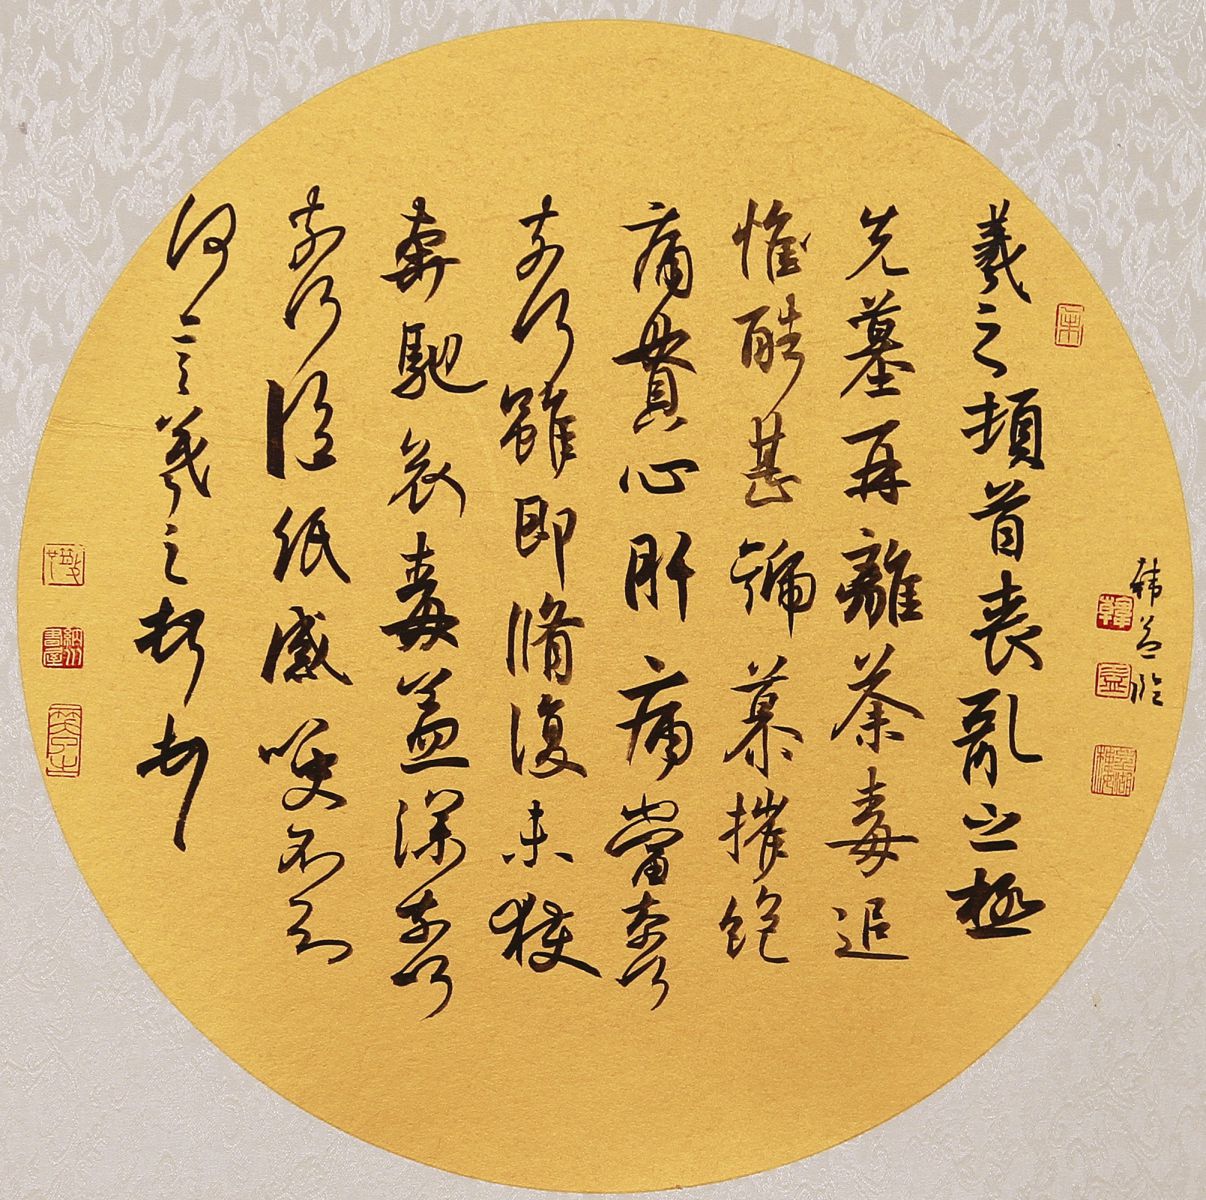 羲之頓首喪亂之極
先墓再離荼毒追
惟酷甚號慕摧絕
痛貫心肝痛當奈何
奈何雖即脩復未獲
奔馳哀毒益深奈何
奈何臨紙感哽不知
何言羲之頓首頓首
韩益临
韓
益